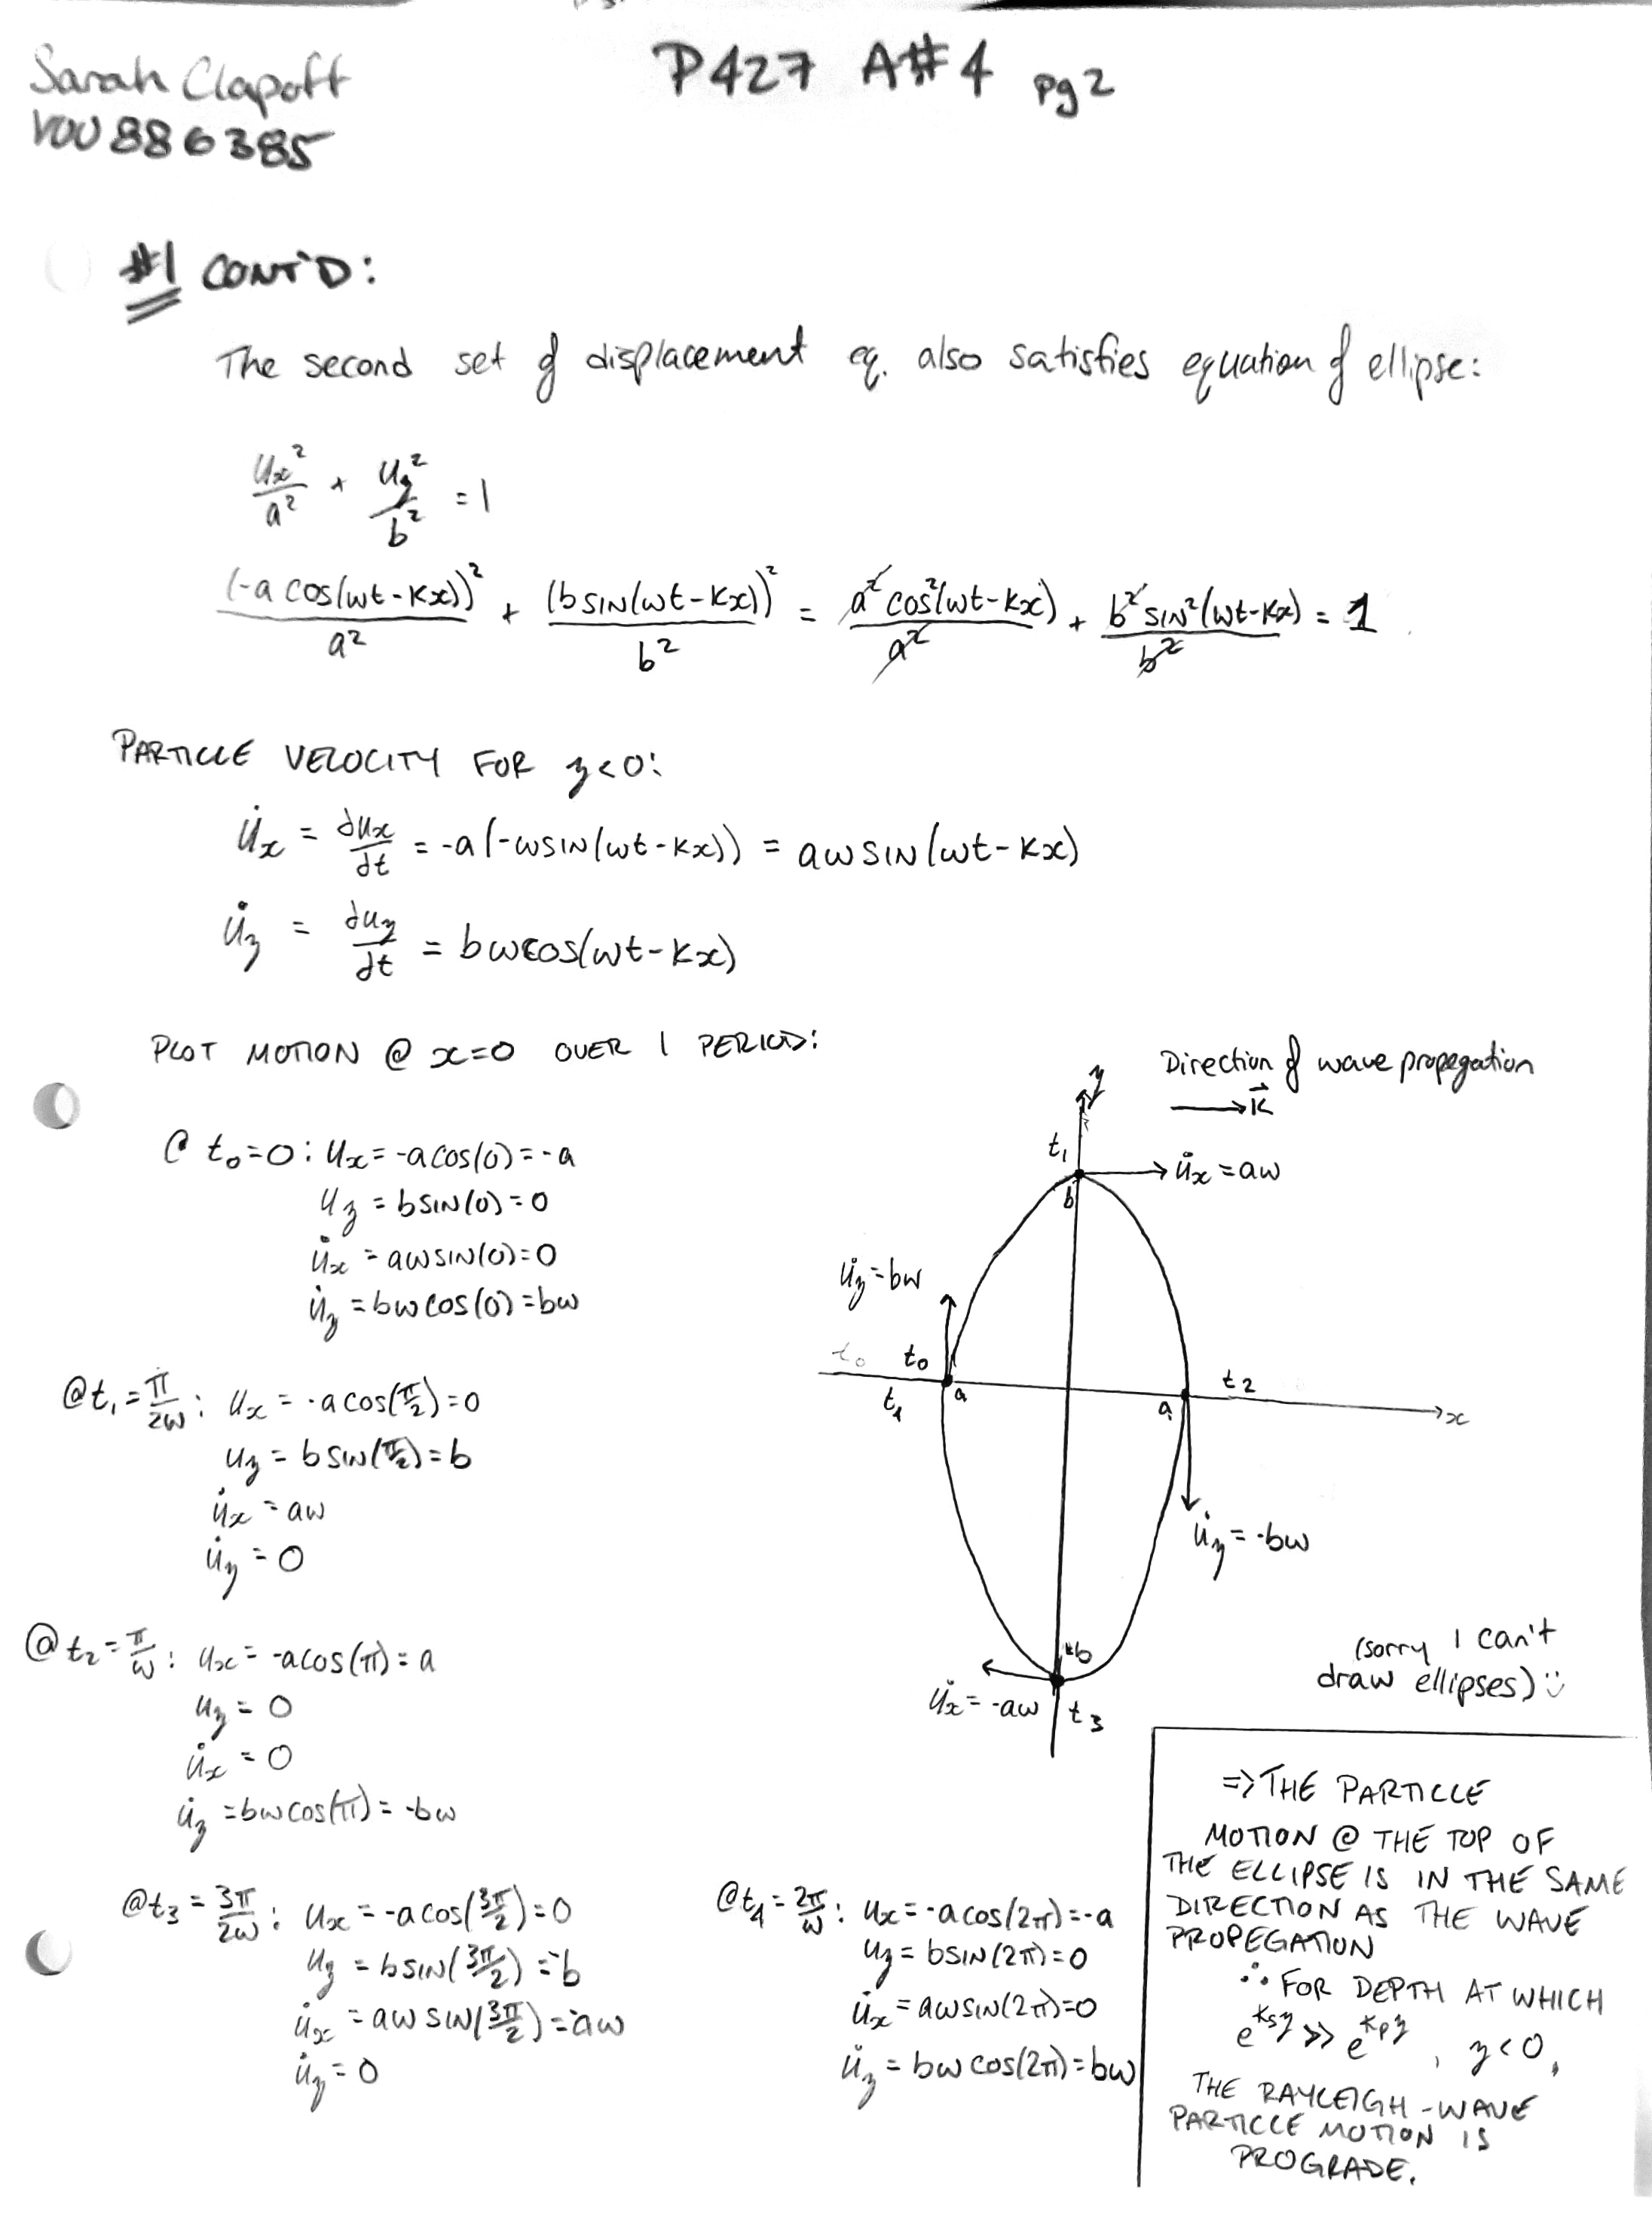 Sarah Clapoff
P427 A#4 pg2
V00886385
#1 CONT'D:
The second set of displacement eq. also satisfies equation of ellipse:
ux²/a² + uz²/b² = 1
(-a cos(ωt-Kx))²/a² + (b SIN(ωt-Kx))²/b² = a² cos²(ωt-Kx)/a² + b² SIN²(ωt-Kx)/b² = 1
PARTICLE VELOCITY FOR z<0:
u̇x = ∂ux/∂t = -a(-ωSIN(ωt-Kx)) = aωSIN(ωt-Kx)
u̇z = ∂uz/∂t = bωcos(ωt-Kx)
PLOT MOTION @ x=0 OVER 1 PERIOD:
Direction of wave propegation
K⃗
@ t₀=0: ux = -a cos(0) = -a
uz = b SIN(0) = 0
u̇x = aω SIN(0) = 0
u̇z = bω cos(0) = bω
@t₁ = π/2ω: ux = -a cos(π/2) = 0
uz = b SIN(π/2) = b
u̇x = aω
u̇z = 0
@t₂ = π/ω: ux = -a cos(π) = a
uz = 0
u̇x = 0
u̇z = bω cos(π) = -bω
@t₃ = 3π/2ω: ux = -a cos(3π/2) = 0
uz = b SIN(3π/2) = -b
u̇x = aω SIN(3π/2) = -aω
u̇z = 0
@t₄ = 2π/ω: ux = -a cos(2π) = -a
uz = b SIN(2π) = 0
u̇x = aω SIN(2π) = 0
u̇z = bω cos(2π) = bω
z
t₁
u̇x = aω
b
u̇z = bω
t₀ t₀
t₂
a
a
t₄
x
u̇z = -bω
-b
u̇x = -aω
t₃
(sorry I can't
draw ellipses) :)
=> THE PARTICLE
MOTION @ THE TOP OF
THE ELLIPSE IS IN THE SAME
DIRECTION AS THE WAVE
PROPEGATION
∴ FOR DEPTH AT WHICH
e^(ksz) >> e^(kpz), z<0,
THE RAYLEIGH-WAVE
PARTICLE MOTION IS
PROGRADE.